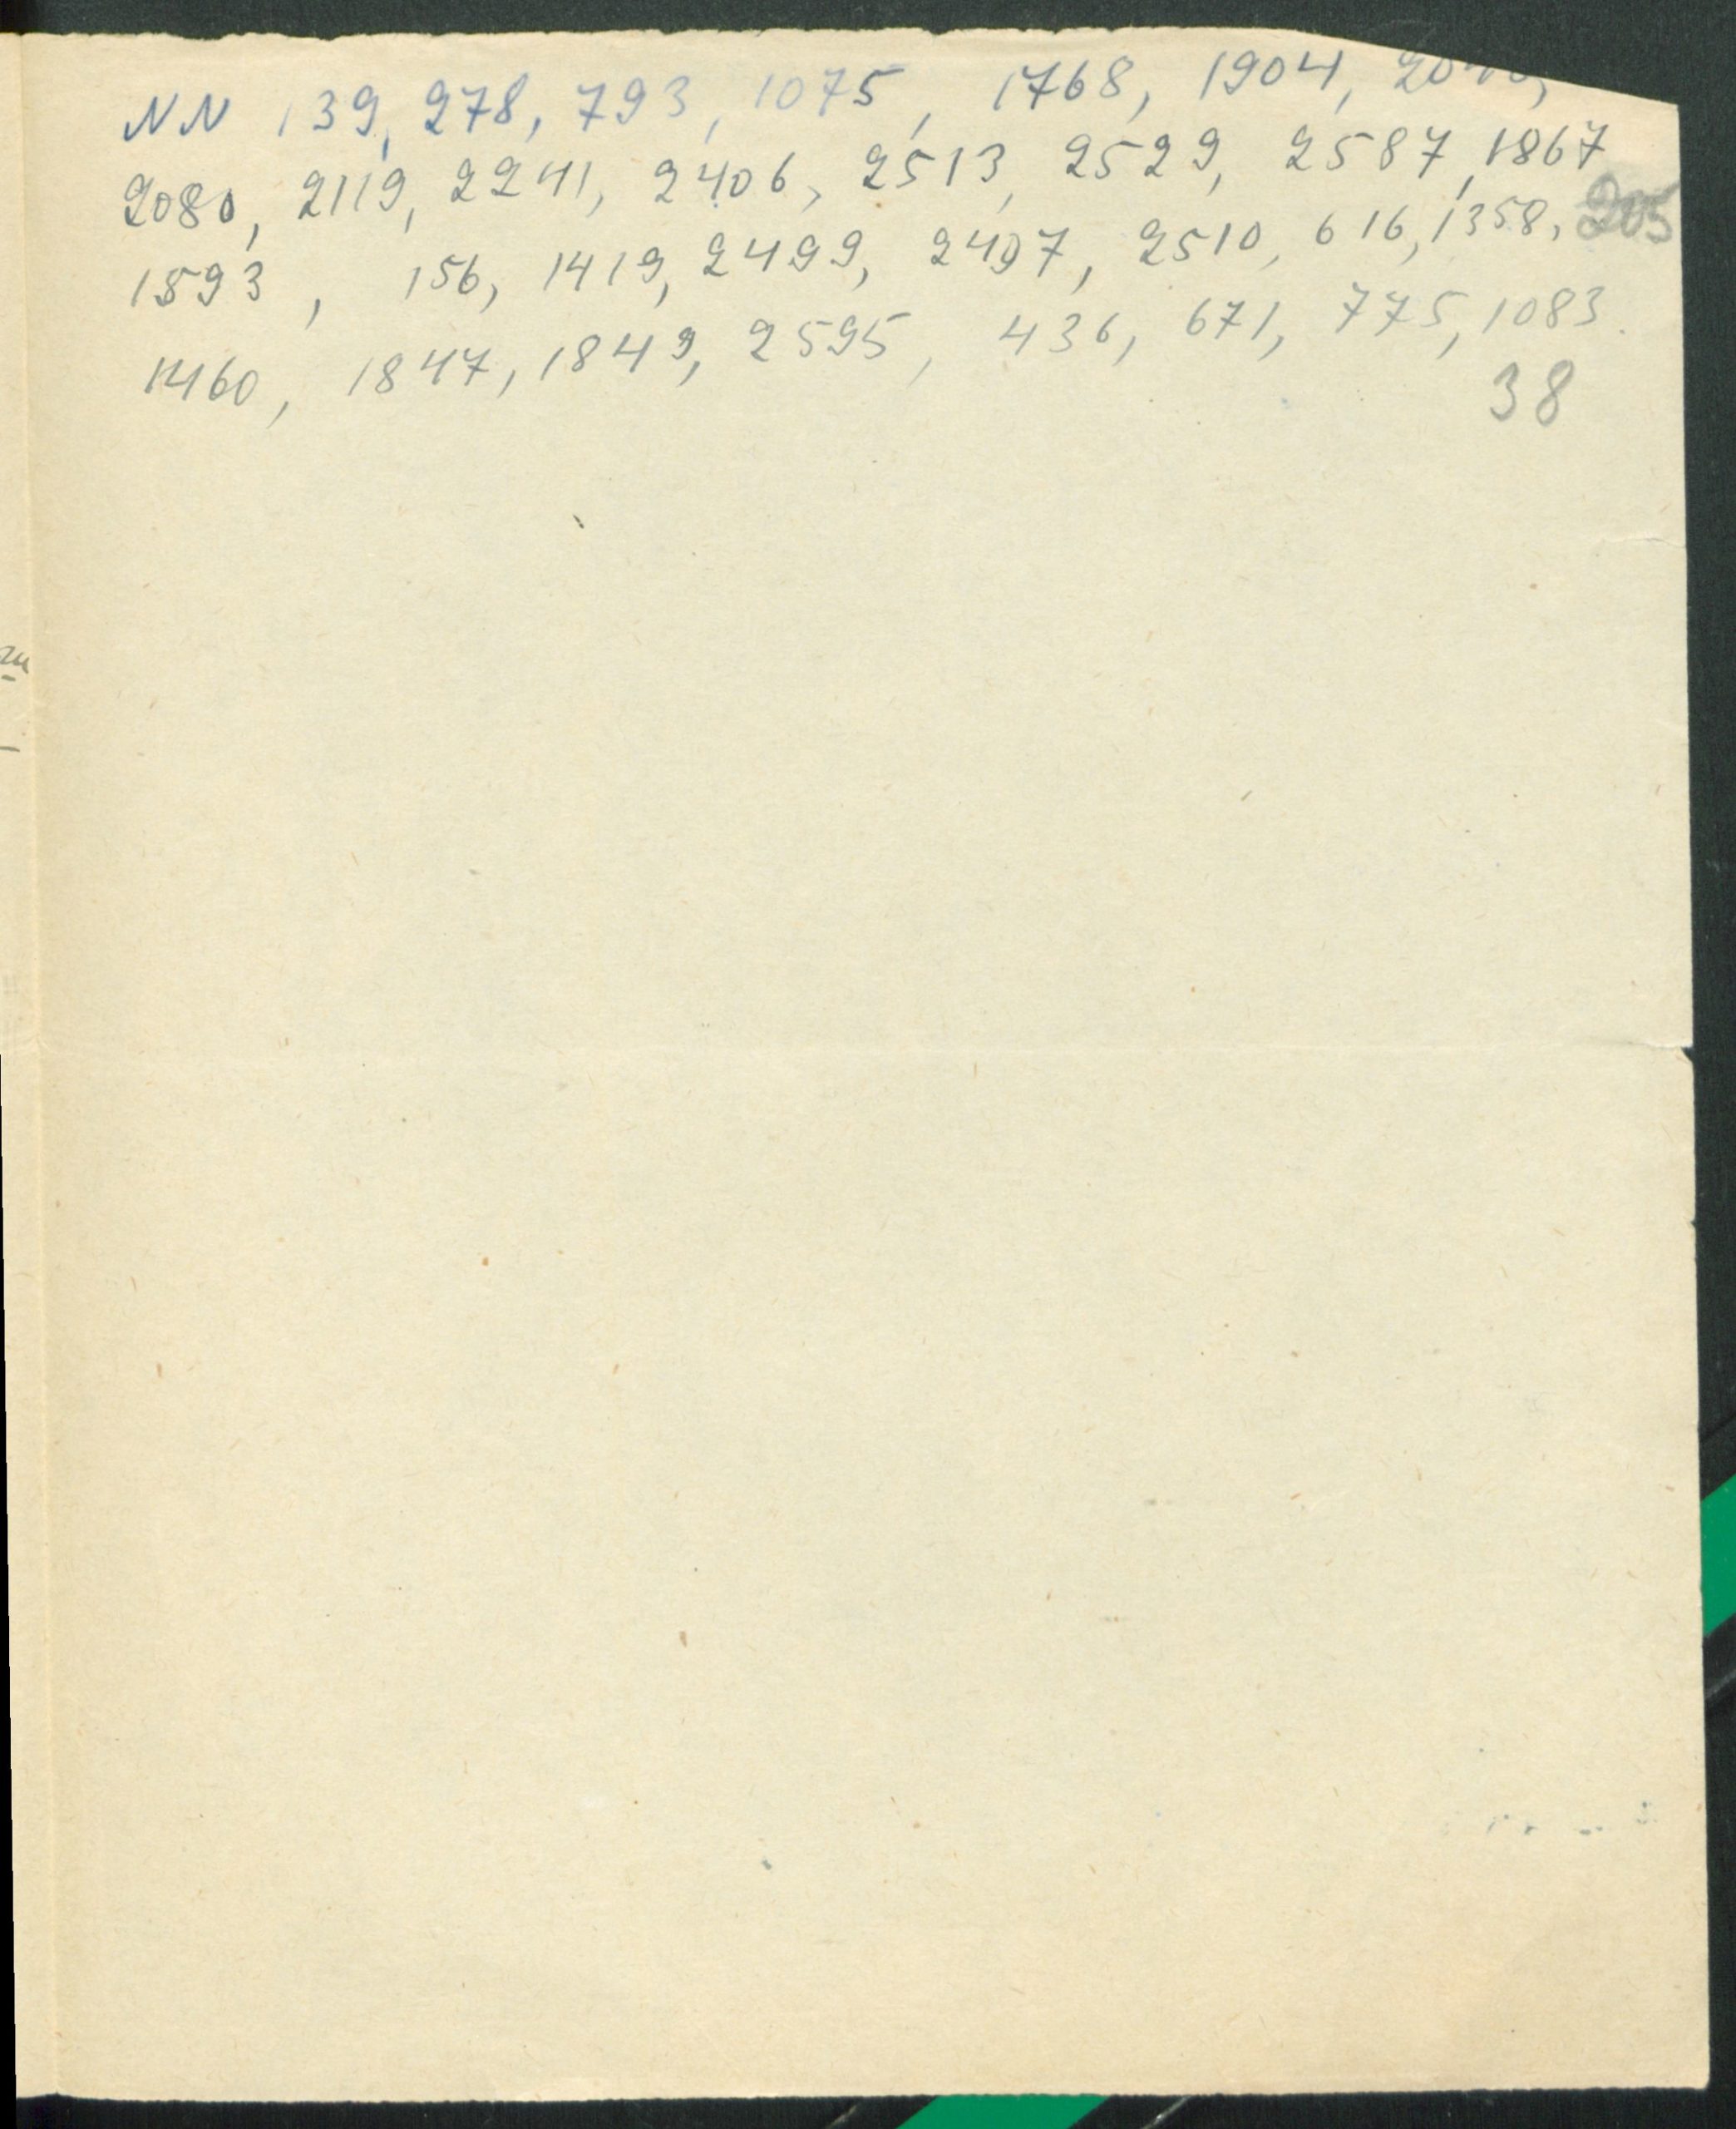 NN 139, 278, 793, 1075, 1768, 1904,
2080, 2119, 2241, 2406, 2513, 2529, 2587, 1867
1593, 156, 1419, 2499, 2497, 2510, 616, 1358, 205
1460, 1847, 1849, 2595, 436, 671, 775, 1083.
38